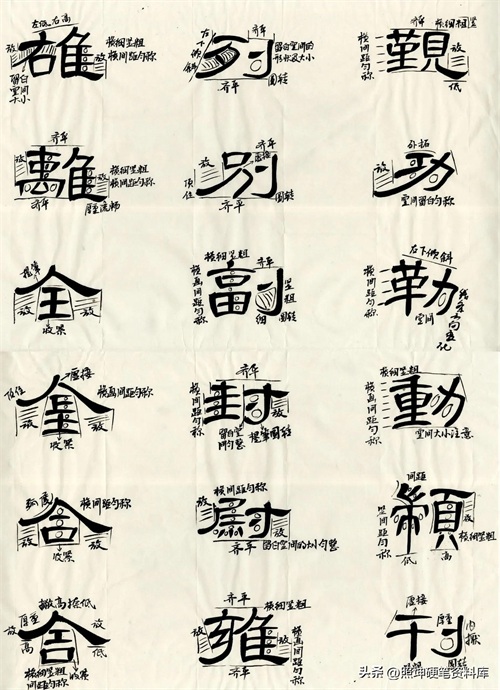 左低右高
放
雄
放
横细竖粗
横间距匀称
留白空间大小
左下倾斜
齐平
列
留白空间的形状及大小
齐平
圆转
齐平
横细竖粗
横间距匀称
覲
放
低
齐平
放
離
放
横细竖粗
横间距匀称
齐平
厚重流畅
齐平
虚接
放
顶住
别
齐平
圆转
外拓
放
功
空间留白匀称
全
放
收紧
放
横细竖粗
齐平
横画间距匀称
副
竖粗
细
圆转
左下倾斜
横间距匀称
勒
空间
线条方向变化
虚接
顶住
金
横画间距匀称
放
收紧
放
齐平
横间距匀称
封
放
留白空间匀整
提笔圆转
横细竖粗
横间距匀称
動
空间大小注意
弧度
横间距匀称
含
放
收紧
放
横间距匀称
放
尉
放
齐平
留白空间的大小匀整
间距
竖间距匀称
放
横细竖粗
低
高
撇高捺低
厚重
放
舍
放
高
低
收紧
横细竖粗
横间距匀称
齐平
横细竖粗
放
雍
放
横间距匀称
齐平
虚接
厚重
刊
内擫
圆转
头条 @照坤硬笔资料库